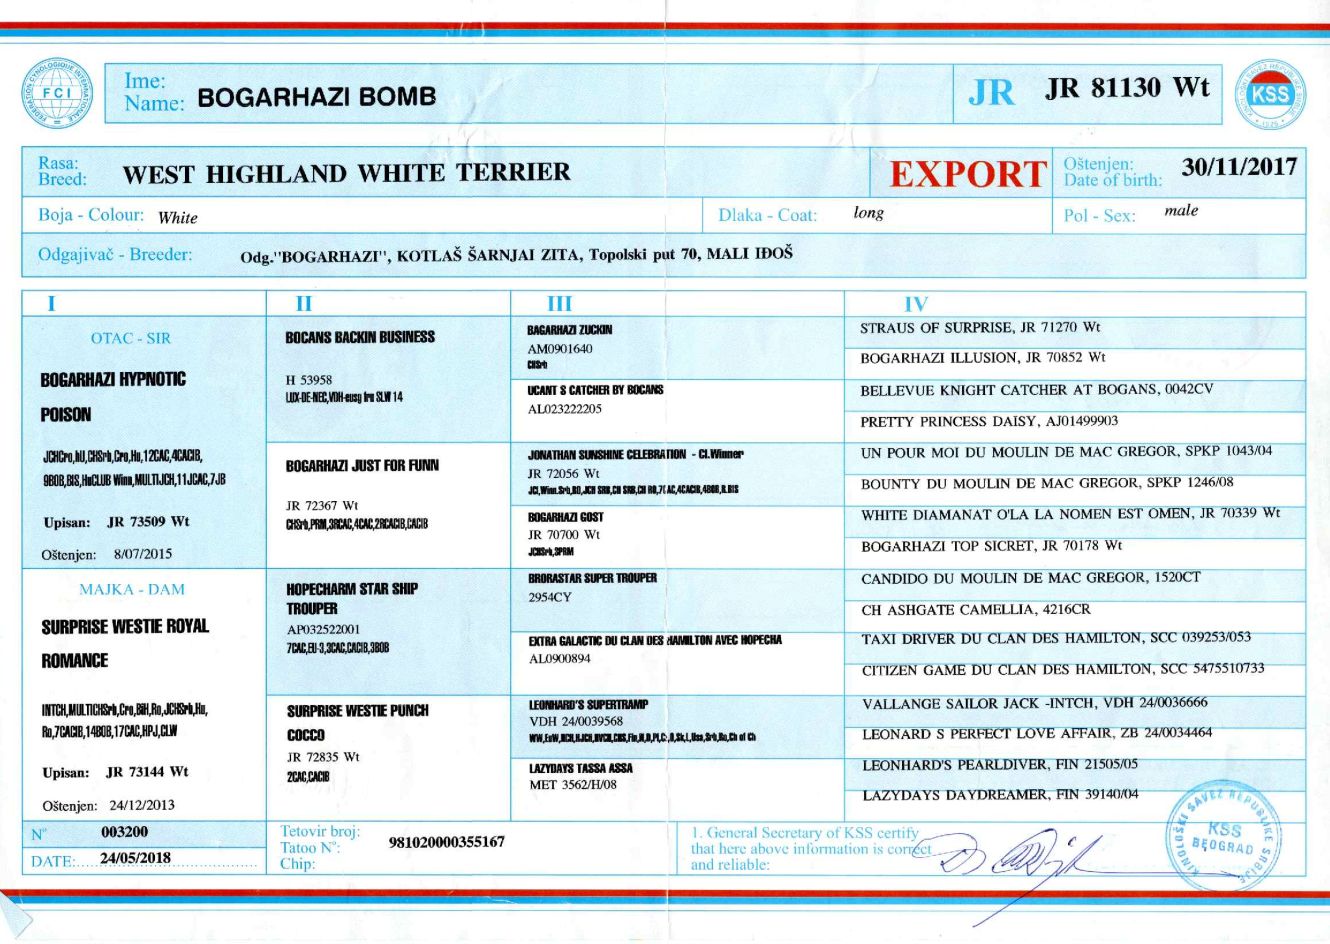 FEDERATION CYNOLOGIQUE INTERNATIONALE
FCI
Ime:
Name: BOGARHAZI BOMB
JR JR 81130 Wt
KSS
Rasa:
Breed: WEST HIGHLAND WHITE TERRIER
EXPORT
Oštenjen:
Date of birth: 30/11/2017
Boja - Colour: White
Dlaka - Coat: long
Pol - Sex: male
Odgajivač - Breeder: Odg."BOGARHAZI", KOTLAŠ ŠARNJAI ZITA, Topolski put 70, MALI IĐOŠ
I
OTAC - SIR
BOGARHAZI HYPNOTIC
POISON
JCHCro,hU,CHSrb,Cro,Hu,12CAC,4CACIB,
9BOB,BIS,HuCLUB Winn,MULTIJCH,11JCAC,7JB
Upisan: JR 73509 Wt
Oštenjen: 8/07/2015
MAJKA - DAM
SURPRISE WESTIE ROYAL
ROMANCE
INTCH,MULTICHSrb,Cro,BiH,Ro,JCHSrb,Hu,
Ro,7CACIB,14BOB,17CAC,HPJ,CLW
Upisan: JR 73144 Wt
Oštenjen: 24/12/2013
II
BOCANS BACKIN BUSINESS
H 53958
LUX-DE-NEC,VDH-eusg fru SLW 14
BOGARHAZI JUST FOR FUNN
JR 72367 Wt
CHSrb,PRM,3RCAC,4CAC,2RCACIB,CACIB
HOPECHARM STAR SHIP
TROUPER
AP032522001
7CAC,EU-3,3CAC,CACIB,3BOB
SURPRISE WESTIE PUNCH
COCCO
JR 72835 Wt
2CAC,CACIB
III
BAGARHAZI ZUCKIN
AM0901640
CHSrb
UCANT S CATCHER BY BOCANS
AL023222205
JONATHAN SUNSHINE CELEBRATION - CI.Winner
JR 72056 Wt
BOGARHAZI GOST
JR 70700 Wt
JCHSrb,3PRM
BRORASTAR SUPER TROUPER
2954CY
EXTRA GALACTIC DU CLAN DES HAMILTON AVEC HOPECHA
AL0900894
LEONHARD'S SUPERTRAMP
VDH 24/0039568
LAZYDAYS TASSA ASSA
MET 3562/H/08
IV
STRAUS OF SURPRISE, JR 71270 Wt
BOGARHAZI ILLUSION, JR 70852 Wt
BELLEVUE KNIGHT CATCHER AT BOGANS, 0042CV
PRETTY PRINCESS DAISY, AJ01499903
UN POUR MOI DU MOULIN DE MAC GREGOR, SPKP 1043/04
BOUNTY DU MOULIN DE MAC GREGOR, SPKP 1246/08
WHITE DIAMANAT O'LA LA NOMEN EST OMEN, JR 70339 Wt
BOGARHAZI TOP SICRET, JR 70178 Wt
CANDIDO DU MOULIN DE MAC GREGOR, 1520CT
CH ASHGATE CAMELLIA, 4216CR
TAXI DRIVER DU CLAN DES HAMILTON, SCC 039253/053
CITIZEN GAME DU CLAN DES HAMILTON, SCC 5475510733
VALLANGE SAILOR JACK -INTCH, VDH 24/0036666
LEONARD S PERFECT LOVE AFFAIR, ZB 24/0034464
LEONHARD'S PEARLDIVER, FIN 21505/05
LAZYDAYS DAYDREAMER, FIN 39140/04
N° 003200
DATE: 24/05/2018
Tetovir broj:
Tatoo N°: 981020000355167
Chip:
1. General Secretary of KSS certify
that here above information is correct
and reliable:
KINOLOŠKI SAVEZ REPUBLIKE SRBIJE
KSS
BEOGRAD